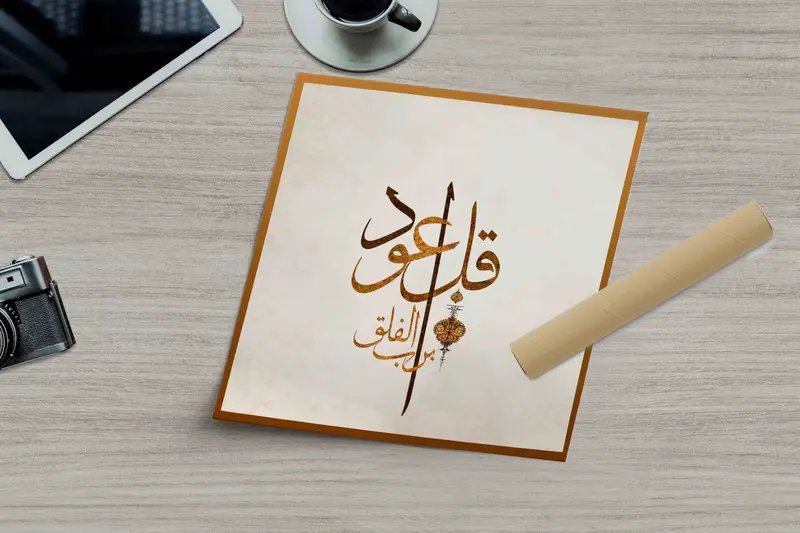 قل اعود
برب الفلق